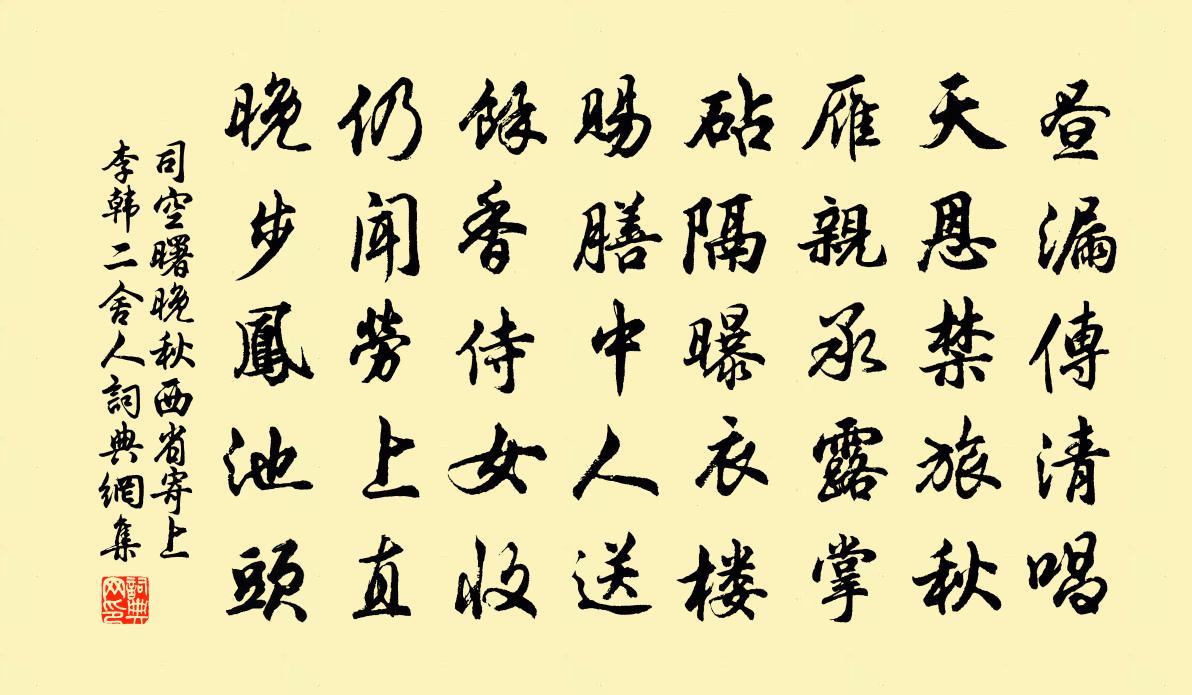 昼漏傳清唱
天恩禁旅秋
雁親承露掌
砧隔曝衣楼
賜膳中人送
餘香侍女收
仍聞勞上直
晚步鳳池頭
司空曙晚秋西省寄上
李韩二舍人詞典網集